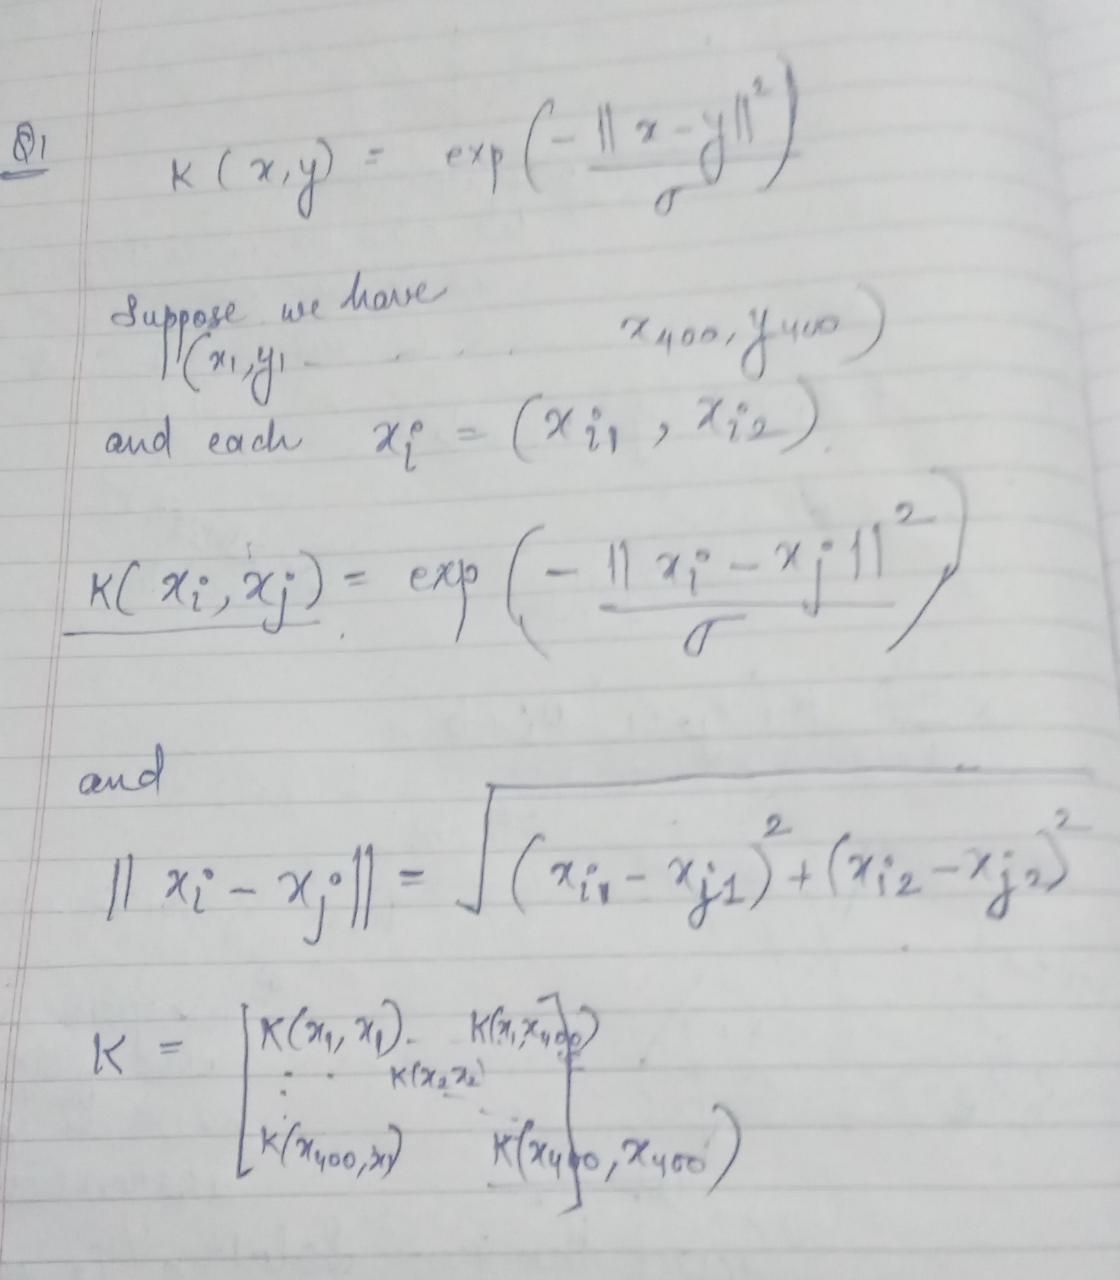 Q1
K(x,y) = exp(-||x-y||²/σ)
Suppose we have
(x₁,y₁ - . . . x₄₀₀, y₄₀₀)
and each xᵢ = (xᵢ₁, xᵢ₂).
K(xᵢ, xⱼ) = exp(-||xᵢ - xⱼ||²/σ)
and
||xᵢ - xⱼ|| = √((xᵢ₁ - xⱼ₁)² + (xᵢ₂ - xⱼ₂)²)
K = [K(x₁, x₁). K(x₁,x₄₀₀)
: . K(x₂x₂)
K(x₄₀₀,x₁) K(x₄₀₀, x₄₀₀)]